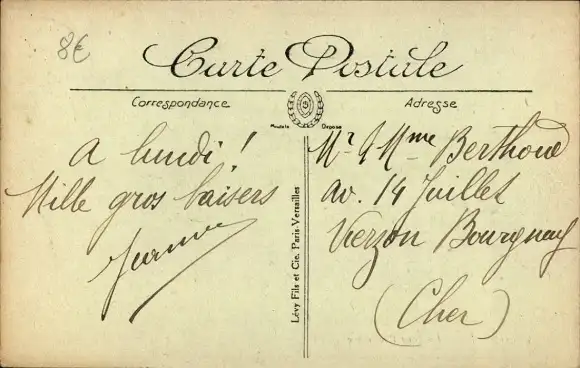 8€
Carte Postale
Correspondance
Adresse
Modèle Déposé
A lundi !
Mille gros baisers
Jeanne
Lévy Fils et Cie, Paris-Versailles
Mr & Mme Berthoud
av. 14 Juillet
Vierzon Bourgneuf
(Cher)